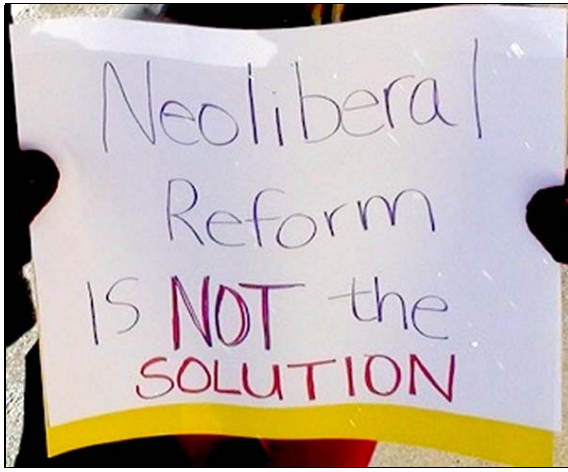 Neoliberal
Reform
IS NOT the
SOLUTION